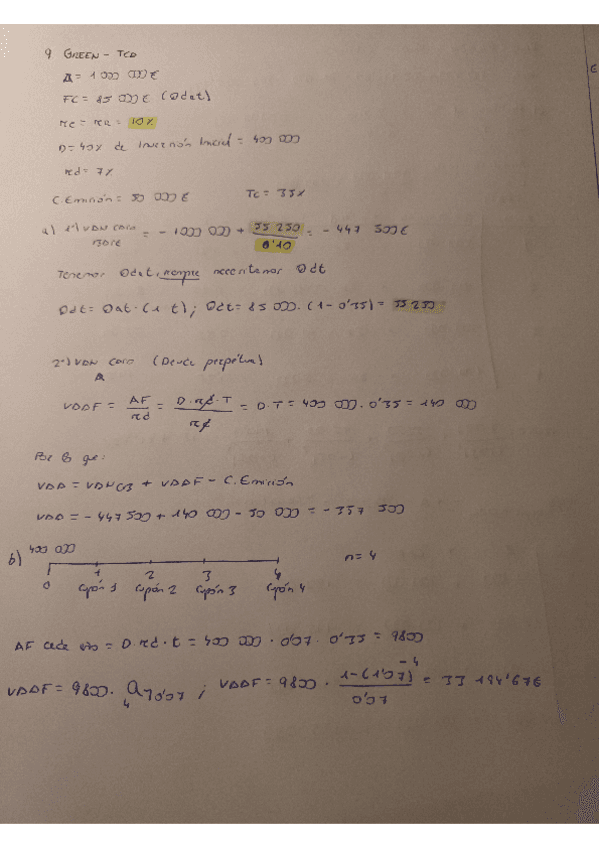 9 GREEN - TED
A = 1 000 000 €
FC = 85 000 € (Qdat)
re = ra = 10%
D = 40% de Inversión Inicial = 400 000
rd = 7%
C.Emisión = 50 000 € TC = 35%
a) 1º) VAN CASO BASE = - 1000 000 + 55 250 / 0'10 = - 447 500 €
Tenemos Qdat, siempre necesitamos Qdt
Qdt = Qat · (1 t) ; Qdt = 85 000 · (1 - 0'35) = 55 250
2º) VAN CASO (Deuda perpétua)
A
VAAF = AF / rd = D · rd · T / rd = D · T = 400 000 · 0'35 = 140 000
Por lo que:
VAA = VANCB + VAAF - C.Emisión
VAA = - 447 500 + 140 000 - 50 000 = - 357 500
b) 400 000 n = 4
0 1 2 3 4
Cupón 1 Cupón 2 Cupón 3 Cupón 4
AF cada año = D · rd · t = 400 000 · 0,07 · 0'35 = 9800
VAAF = 9800 · a 4 0'07 ; VAAF = 9800 · 1 - (1'07)^-4 / 0'07 = 33 194'67 €